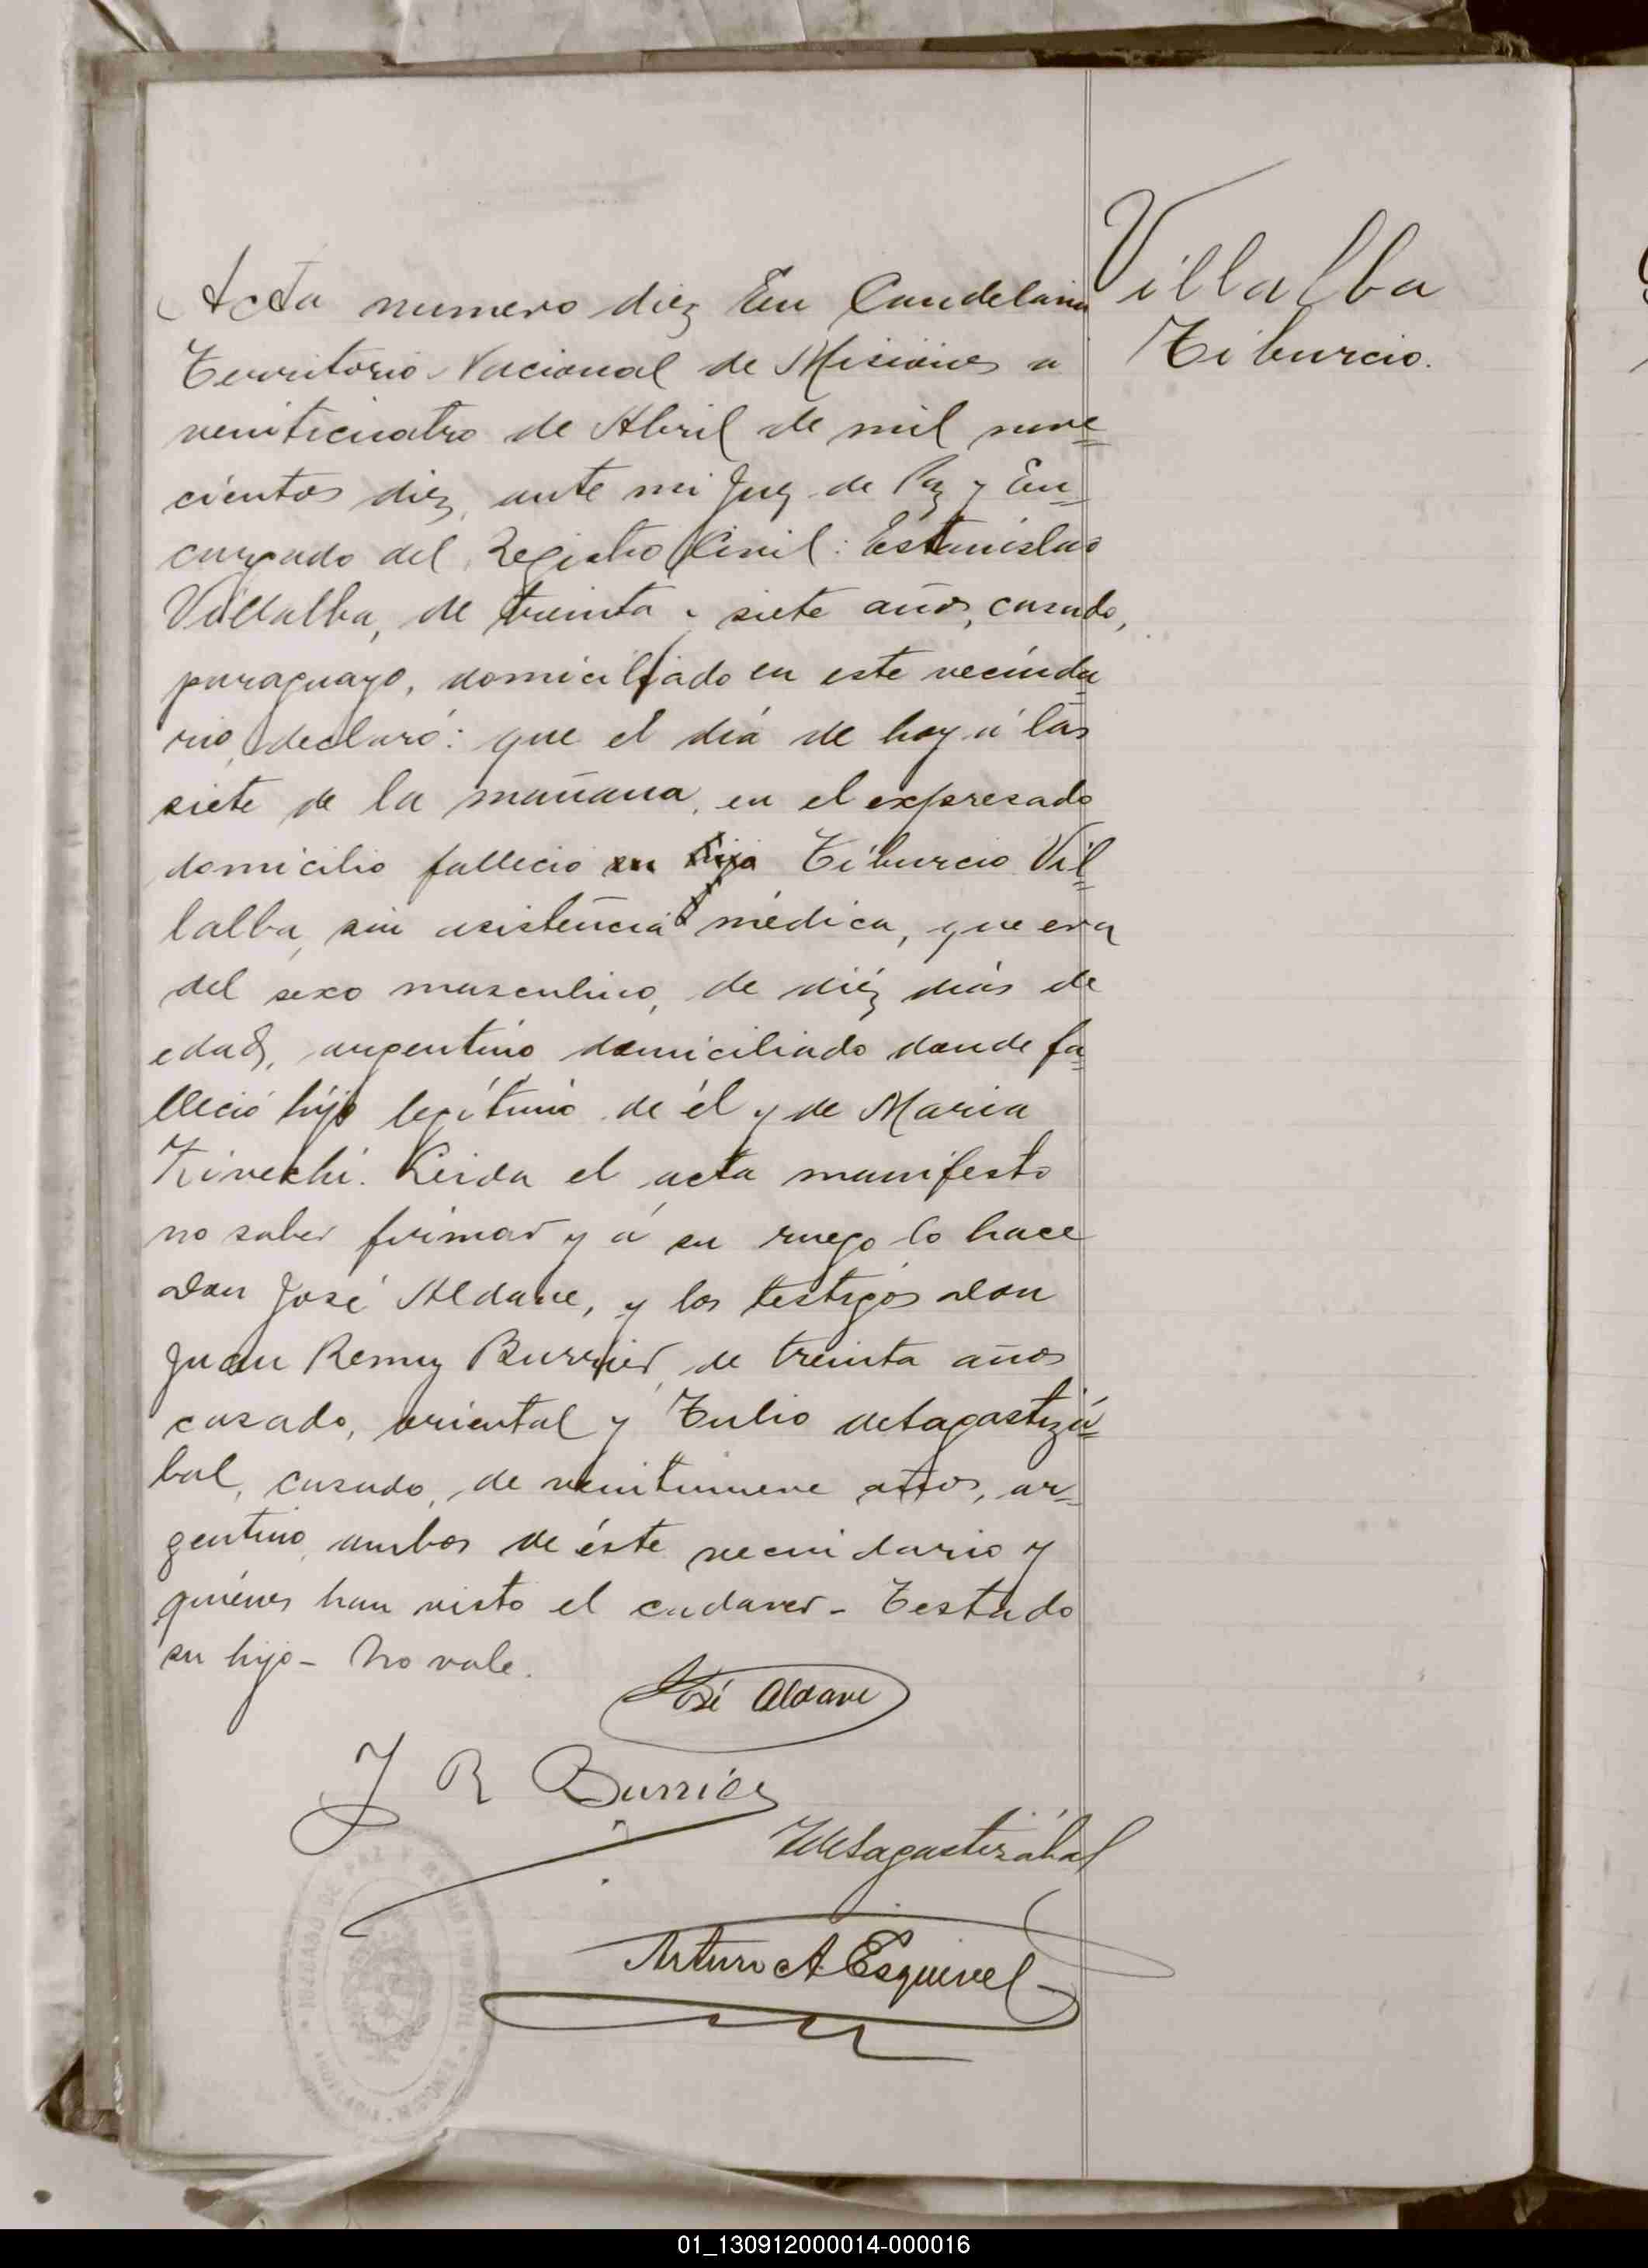 Villalba
Tiburcio.
Acta numero diez En Candelaria
Territorio Nacional de Misiones a
veniticuatro de Abril de mil nove=
cientos diez, ante mi Juez de Paz y En=
cargado del Registro Civil: Estanislao
Villalba, de treinta y siete años, casado,
paraguayo, domiciliado en este vecinda
rio, declaró: que el día de hoy á las
siete de la mañana, en el expresado
domicilio fallecio su hijo Tiburcio Vil=
lalba, sin asistencia médica, que era
del sexo masculino, de diéz días de
edad, argentino domiciliado donde fa=
lleció hijo legítimo de él y de Maria
Leida el acta manifesto
no saber firmar y á su ruego lo hace
Don José Aldave, y los testigos Don
Juan Remy Burrier, de treinta años
casado, oriental y Tulio deSagastizá=
bal, casado, de venitinueve años, ar=
gentino, ambos de éste vecindario y
quiénes han visto el cadaver - Testado
su hijo - No vale.
José Aldave
J R Burrier
TdeSagastizábal
Arturo A Esquivel
JUZGADO DE PAZ Y REGISTRO CIVIL
01_130912000014-000016